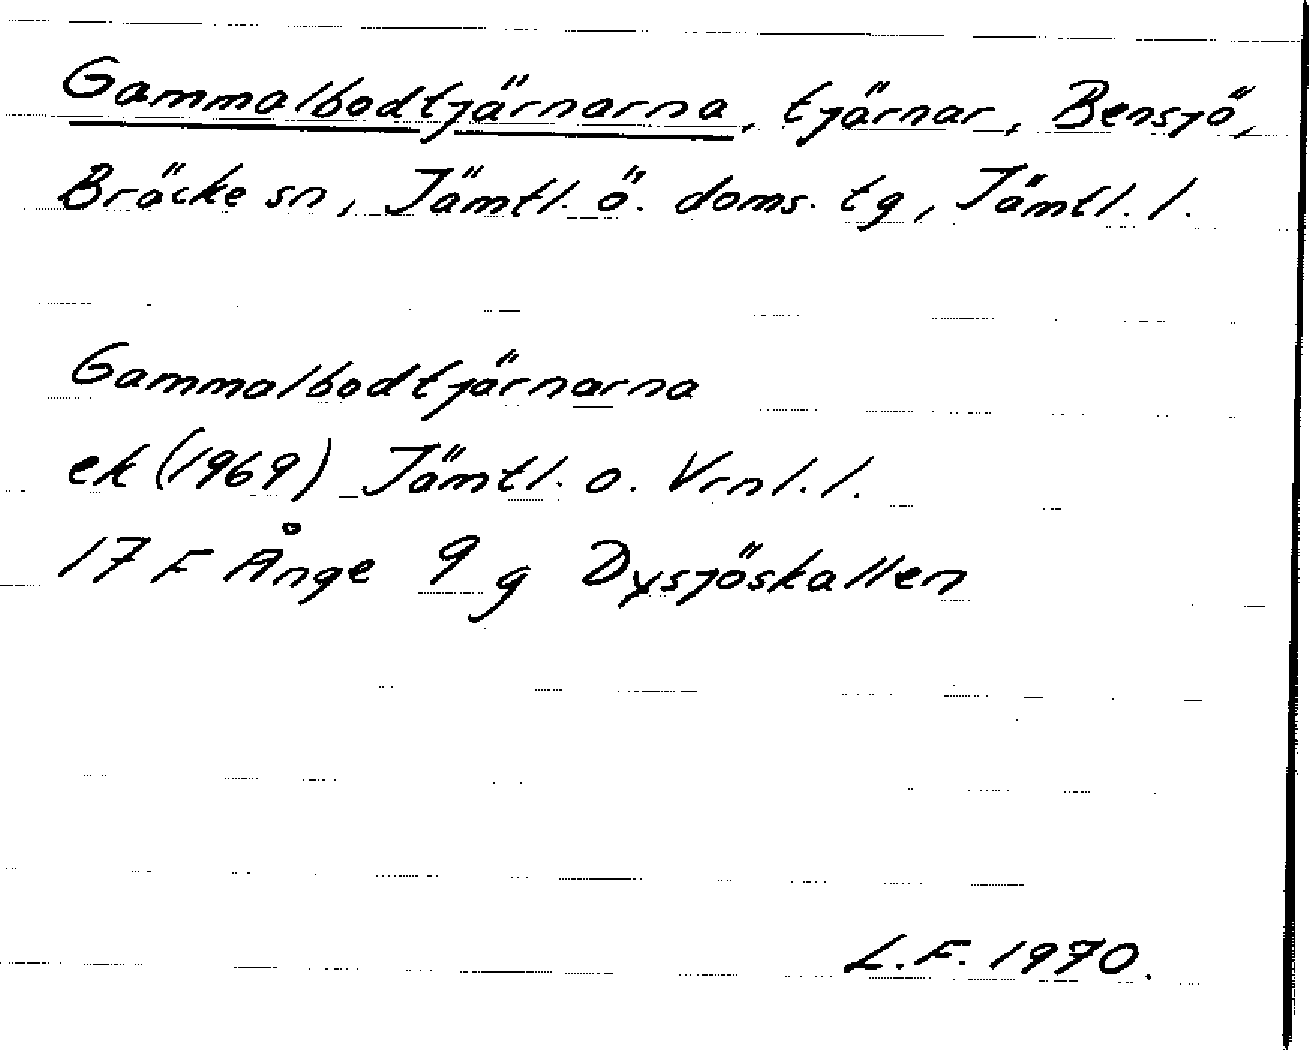 Gammalbodtjärnarna, tjärnar, Bensjö,
Bräcke sn, Jämtl. ö. doms. tg, Jämtl. l.
Gammalbodtjärnarna
ek (1969) Jämtl. o. Vrml. l.
17 F Ånge 9 g Dysjöskallen
L.F. 1970.